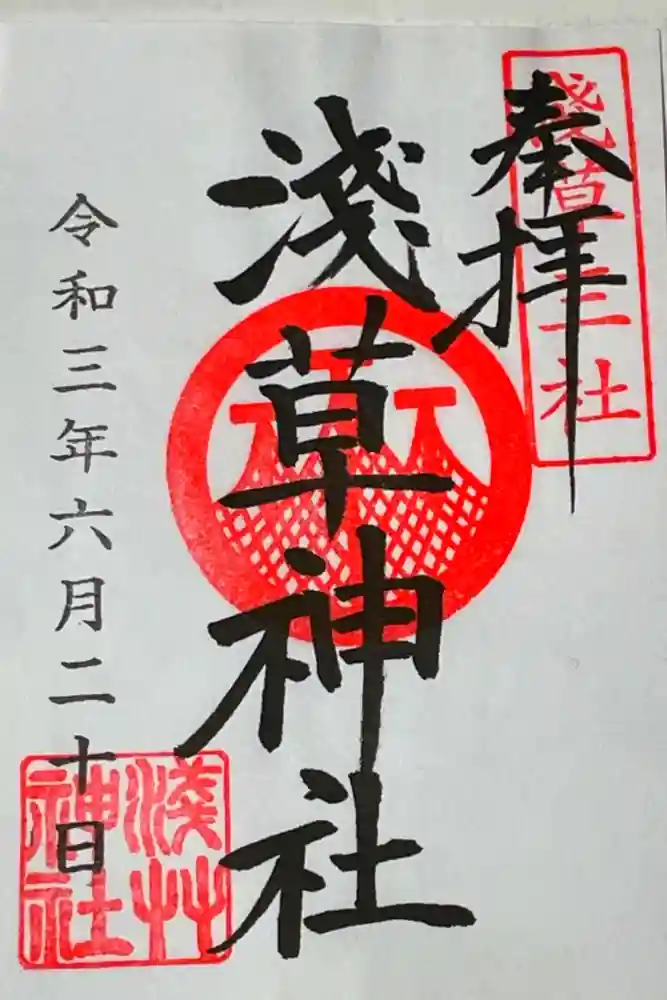 奉拝
淺草三社
淺草神社
令和三年六月二十日
淺草神社